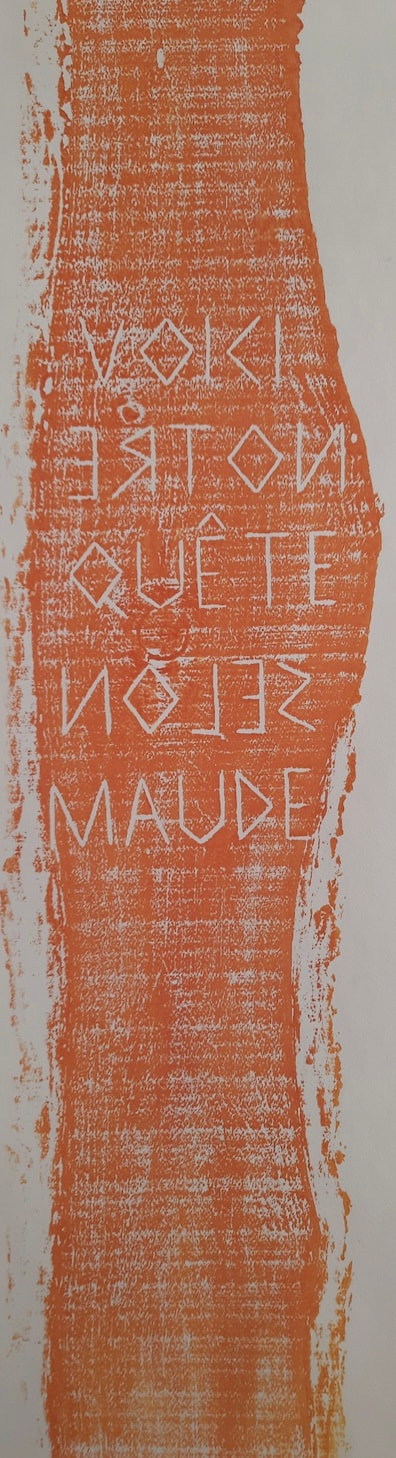 VOICI
NOTRE
QUÊTE
SELON
MAUDE